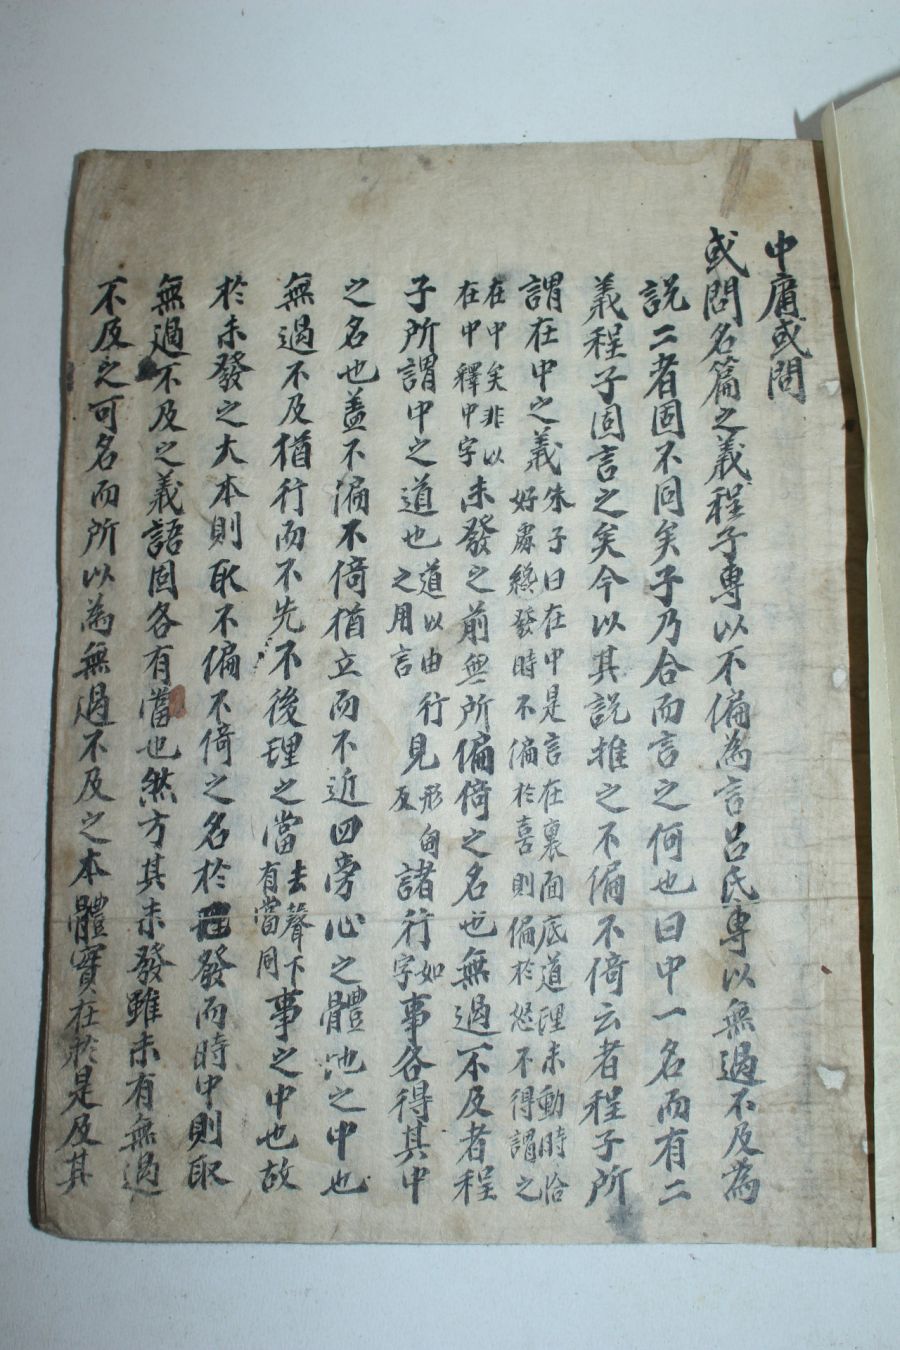 中庸或問
或問名篇之義程子專以不偏為言呂氏專以無過不及為
說二者固不同矣子乃合而言之何也曰中一名而有二
義程子固言之矣今以其說推之不偏不倚云者程子所
謂在中之義朱子曰在中是言在裏面底道理未動時恰
好處纔發時不偏於喜則偏於怒不得謂之
在中矣非以
在中釋中字未發之前無所偏倚之名也無過不及者程
子所謂中之道也道以由行見形甸
之用言反諸行如字事各得其中
之名也盖不偏不倚猶立而不近四旁心之體地之中也
無過不及猶行而不先不後理之當去聲下
有當同事之中也故
於未發之大本則取不偏不倚之名於發而時中則取
無過不及之義語固各有當也然方其未發雖未有無過
不及之可名而所以為無過不及之本體實在於是及其